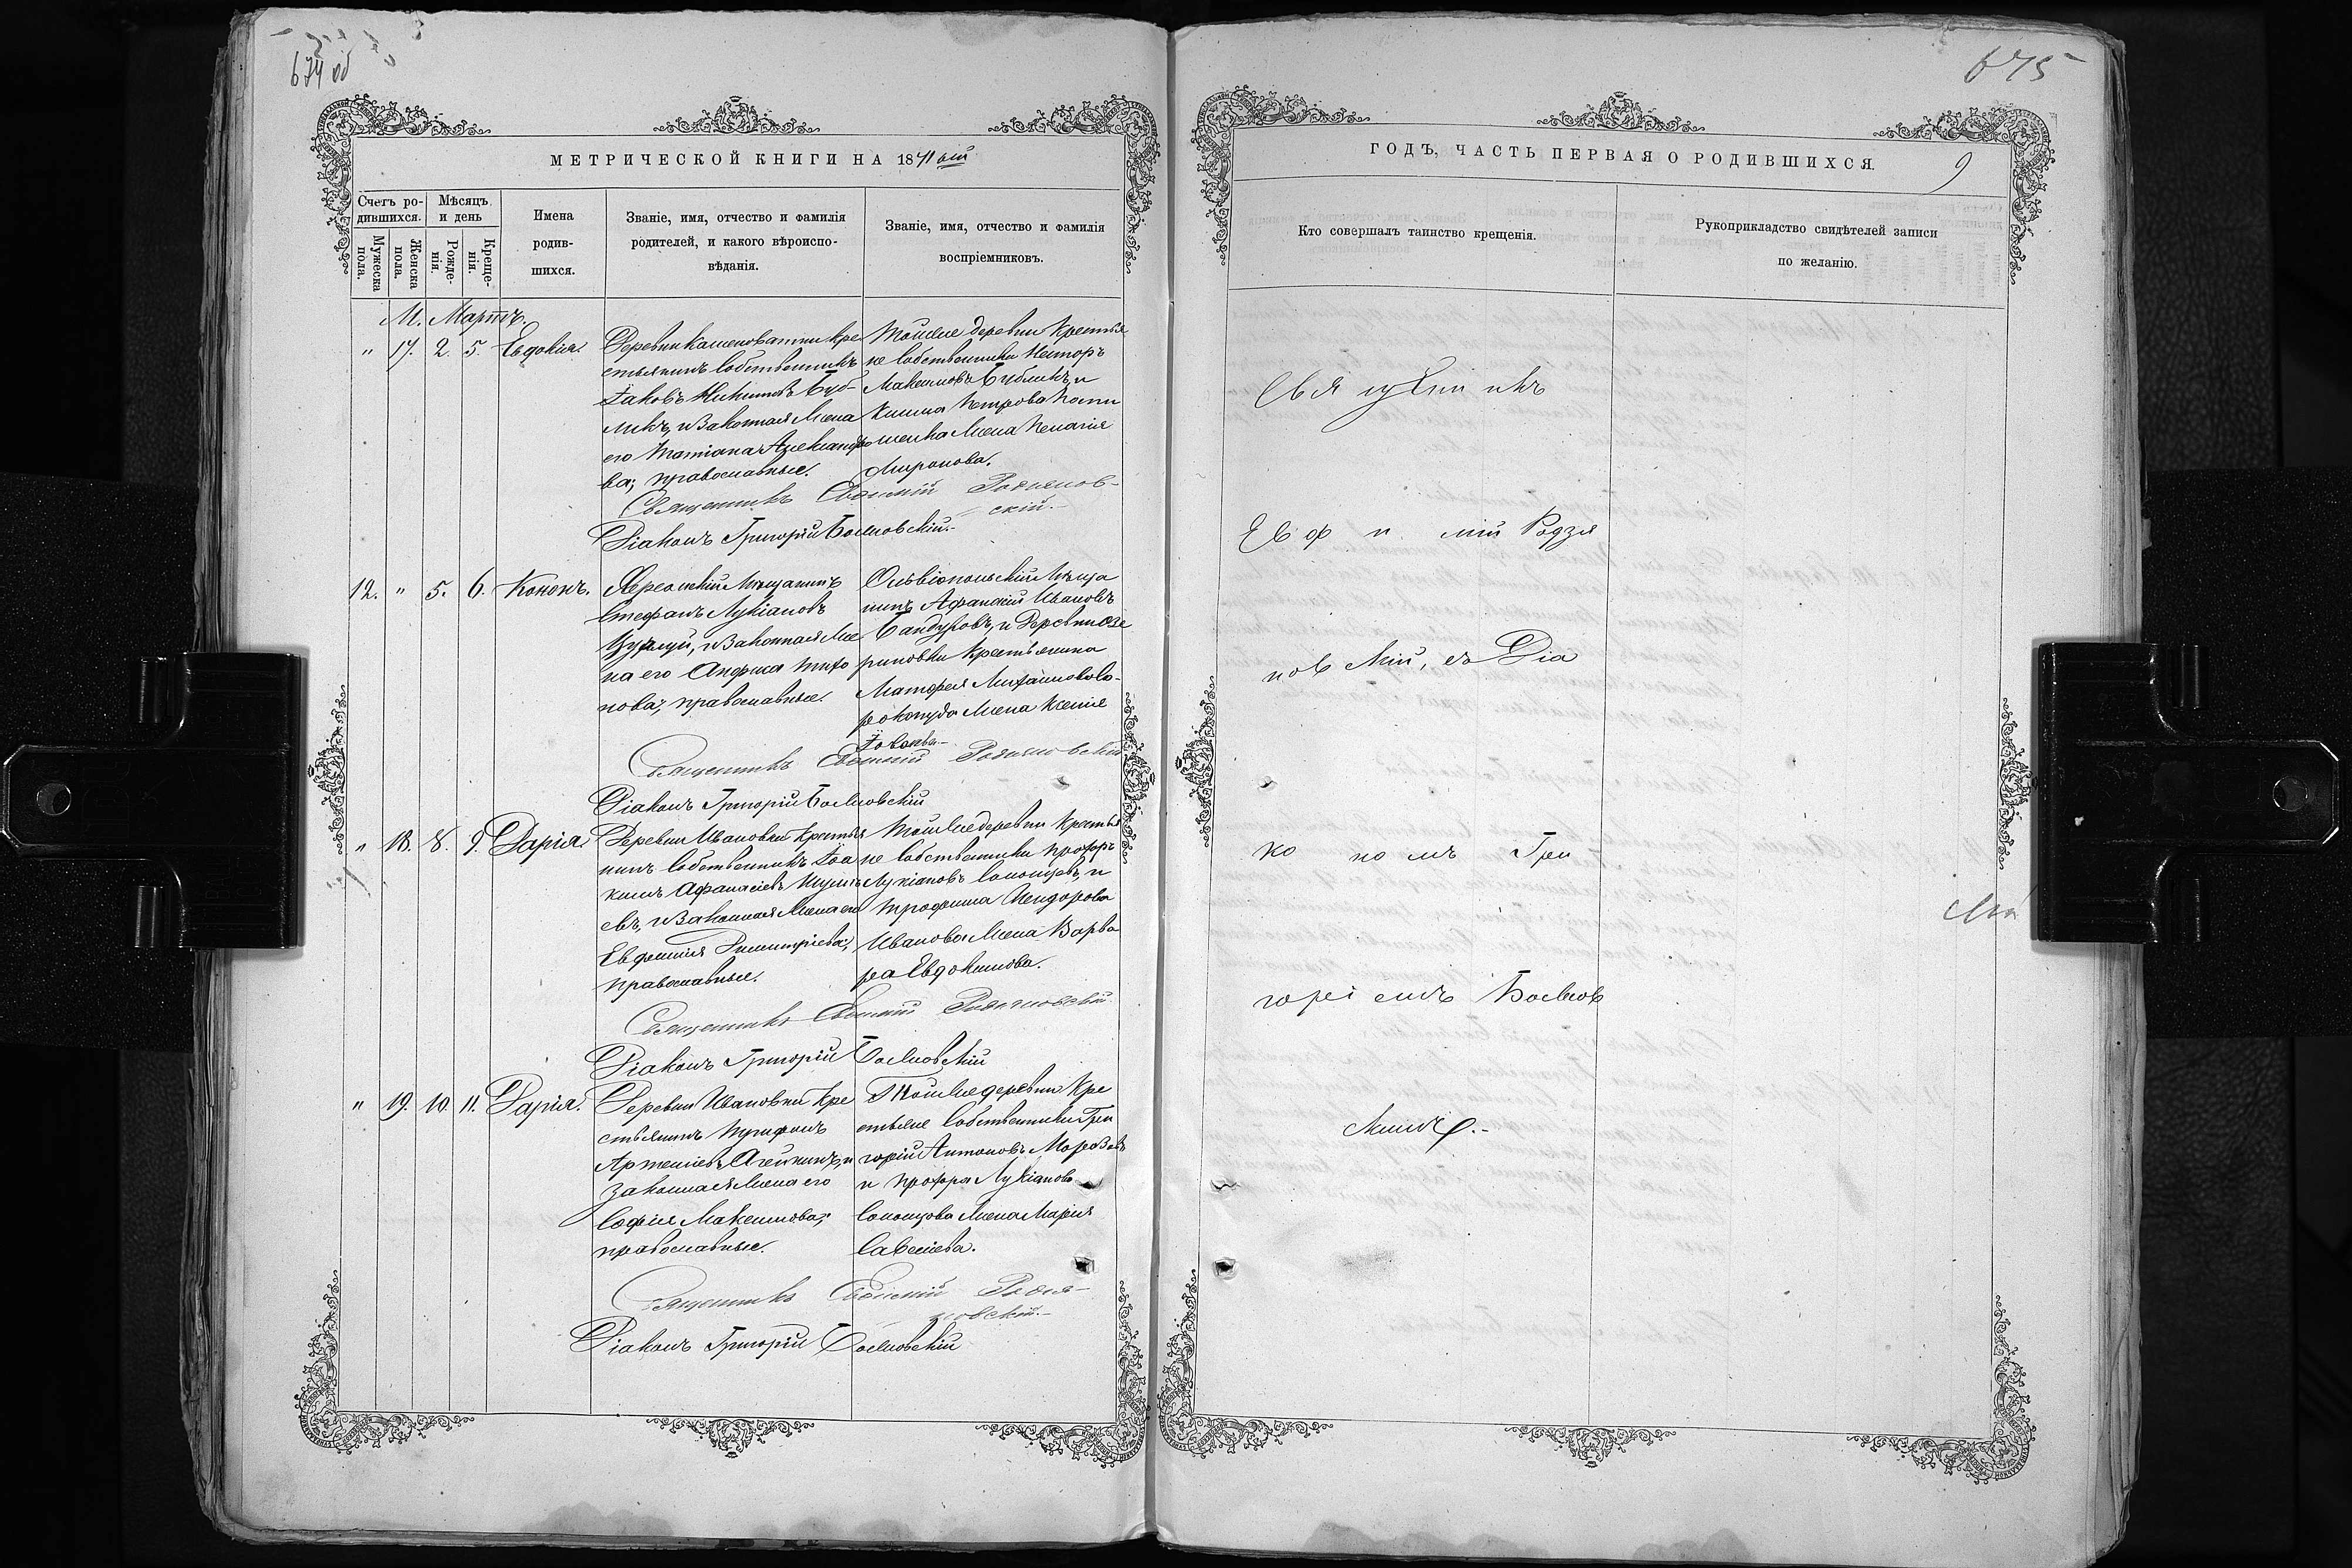 674 об
МЕТРИЧЕСКОЙ КНИГИ НА 1871 ый
Счетъ ро-
дившихся.
Мѣсяцъ
и день
Мужеска
пола.
Женска
пола.
Рожде-
нія.
Креще-
нія.
Имена
родив-
шихся.
Званіе, имя, отчество и фамилія
родителей, и какого вѣроиспо-
вѣданія.
Званіе, имя, отчество и фамилія
воспріемниковъ.
М. Мартъ.
" 17. 2. 5. Евдокія.
Деревни Каменоватки кре
стьянинъ собственникъ
Іаковъ Никитинъ Буб-
ликъ, и Законная Жена
его Татіана Александро
ва; православные.
Тойже деревни Крестья
не собственники Несторъ
Максимовъ Бубликъ, и
Петрова
жена Пелагія
Миронова.
Священникъ Евфимій Родзянов-
скій.-
Діаконъ Григорій Божковскій.-
12. " 5. 6. Кононъ.
Мѣщанинъ
Стефанъ Лукіановъ
и Законная Же
на его Анфиса Тихо
нова; православные.
Ольвіопольскій Мѣща
нинъ Афанасій Ивановъ
Бандуровъ, и Деревни Озе
риновки Крестьянина
Матфея Михайлова
жена Ксенія
Священникъ Евфимій Родзяновскій
Діаконъ Григорій Божковскій
" 18. 8. 9. Дарія.
Деревни Ивановки Крестья
нинъ собственникъ Іоа
кимъ Афанасіевъ
евъ, и Законная Жена его
Евфимія Димитріева;
православные.
Тойже деревни Крестья
не собственники Прохоръ
Лукіановъ и
Трофима
Иванова Жена Варва
ра Евдокимова.
Священникъ Евфимій Родзяновскій
Діаконъ Григорій Божковскій
" 19. 10. 11. Дарія.
Деревни Ивановки Кре
стьянинъ Трифонъ
Артеміевъ и
законная Жена его
Софія Максимова;
православные.
Тойже деревни Кре
стьяне собственники Гри
горій Антоновъ Морозовъ
и Прохора Лукіанова
Жена Марія
Савеліева.
Священникъ Евфимій Родзя-
новскій.-
Діаконъ Григорій Божковскій
675
ГОДЪ, ЧАСТЬ ПЕРВАЯ О РОДИВШИХСЯ.
9
Кто совершалъ таинство крещенія.
Рукоприкладство свидѣтелей записи
по желанію.
Священникъ
Евфимій Родзя
новскій, съ Діа
кономъ Гри
горіемъ Божков
скимъ.-